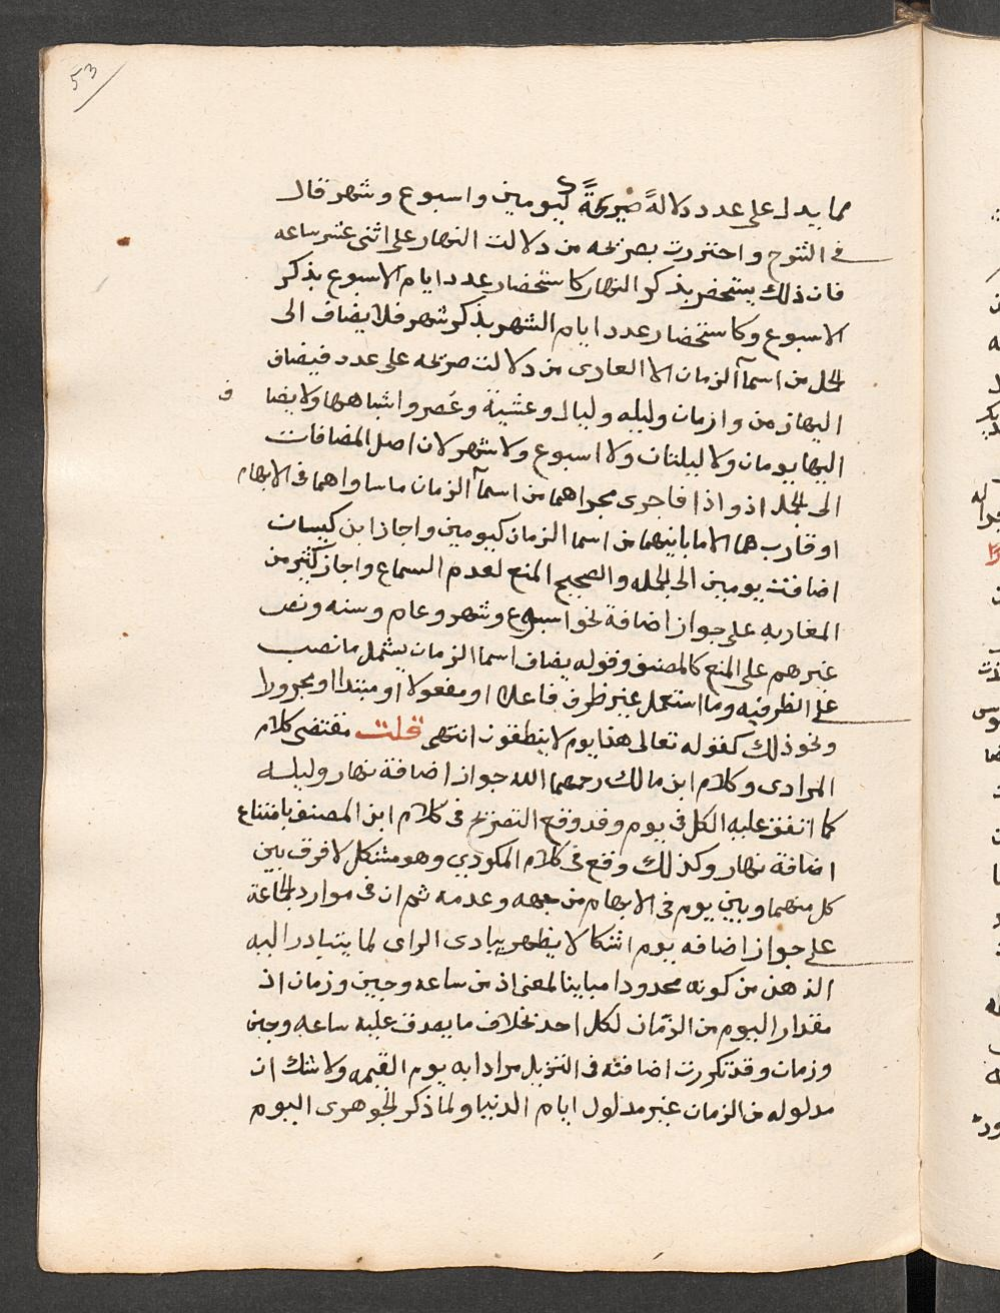 53
مما يدل على عدد دلالةً صريحةً كيومين واسبوع وشهر قال
في الشرح واحترزت بصريحه من دلالت النهار على اثنى عشر ساعه
فان ذلك يستحضر بذكر النهار كاستحضار عدد ايام الاسبوع بذكر
الاسبوع وكاستحضار عدد ايام الشهر بذكر شهر فلا يضاف الى
الجمل من اسمآ الزمان الا العارى من دلالت صريحه على عدد فيضاف
اليها زمن وازمان وليله وليال وعشية وعصر واشباهها ولا يضا ف
اليها يومان ولا ليلتان ولا اسبوع ولا شهر لان اصل المضافات
الى الجمل اذ واذا فاجرى مجراهما من اسمآ الزمان ما ساواهما فى الابهام
او قاربهما لا ما باينهما من اسما الزمان كيومين واجاز ابن كيسان
اضافت يومين الى الجمله والصحيح المنع لعدم السماع واجاز كثير من
المغاربه على جواز اضافة نحو اسبوع وشهر وعام وسنه ونص
غيرهم على المنع كالمصنف وقوله يضاف اسما الزمان يشمل ما نصب
على الظرفيه وما استعمل غير ظرف فاعلا او مفعولا او مبتدا او مجرورا
ونحو ذلك كقوله تعالى هذا يوم لا ينطقون انتهى قلت مقتضى كلام
المرادى وكلام ابن مالك رحمهما الله جواز اضافة نهار وليله
كما اتفق عليه الكل فى يوم وقد وقع التصريح فى كلام ابن المصنف بامتناع
اضافة نهار وكذلك وقع فى كلام المكودي وهو مشكل لا فرق بين
كل منهما وبين يوم فى الابهام من جهه وعدمه ثم ان فى موارد الجماعة
على جواز اضافه يوم اشكالا يظهر ببادى الراى لما يتبادر اليه
الذهن من كونه محدودا مباينا لمعنى اذ من ساعه وحين وزمان اذ
مقدار اليوم من الزمان لكل احد بخلاف ما يصدق عليه ساعه وحين
وزمان وقد تكررت اضافته فى التنزيل مرادا به يوم القيمه ولا شك ان
مدلوله من الزمان غير مدلول ايام الدنيا ولما ذكر الجوهرى اليوم